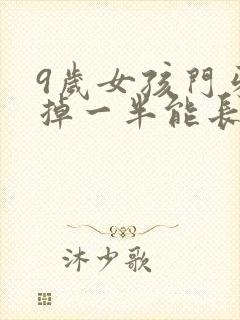 9歲女孩門牙
掉一半能長
沐少歌